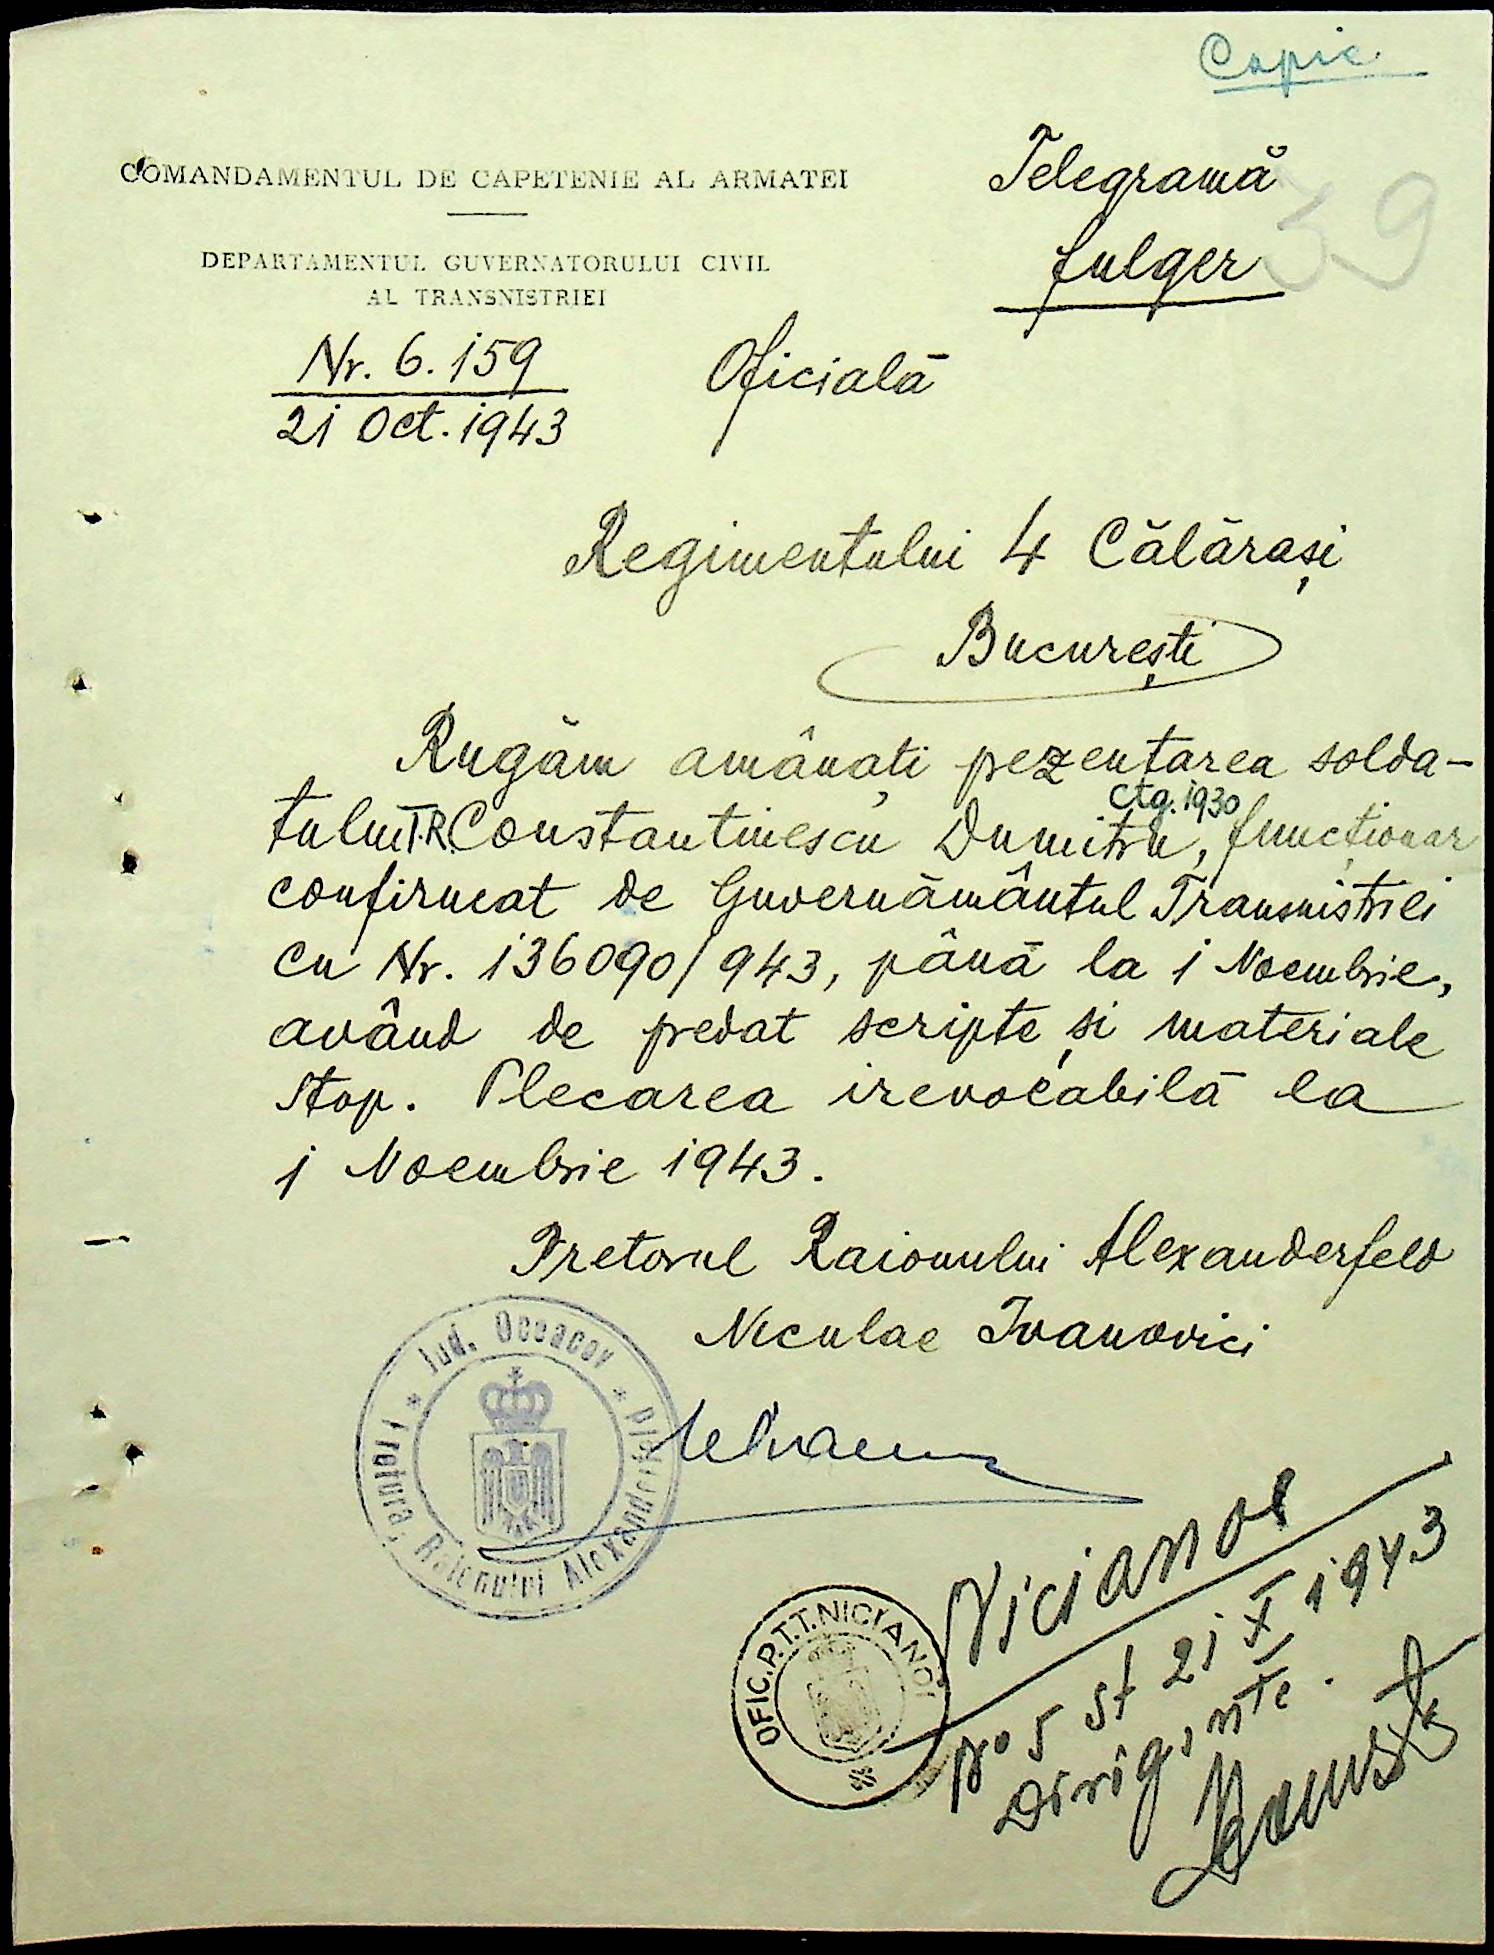 Copie
COMANDAMENTUL DE CAPETENIE AL ARMATEI
DEPARTAMENTUL GUVERNATORULUI CIVIL
AL TRANSNISTRIEI
Telegramă
fulger
39
Nr. 6.159
21 Oct. 1943
Oficială
Regimentului 4 Călărași
București
Rugăm amânați pezentarea solda-
tului T.R. Constantinescu Dumitru, ctg. 1930, funcționar
confirmat de Guvernământul Transnistriei
cu Nr. 136090/943, până la 1 Noembrie,
având de predat scripte și materiale
Stop. Plecarea irevocabilă la
1 Noembrie 1943.
Pretorul Raionului Alexanderfeld
Niculae Ivanovici
Jud. Oceacov * Pretura Raionului Alexanderfeld *
OFIC.P.T.T.NICIANOI
Nicianoi
No 5 St 21 X 1943
Diriginte.